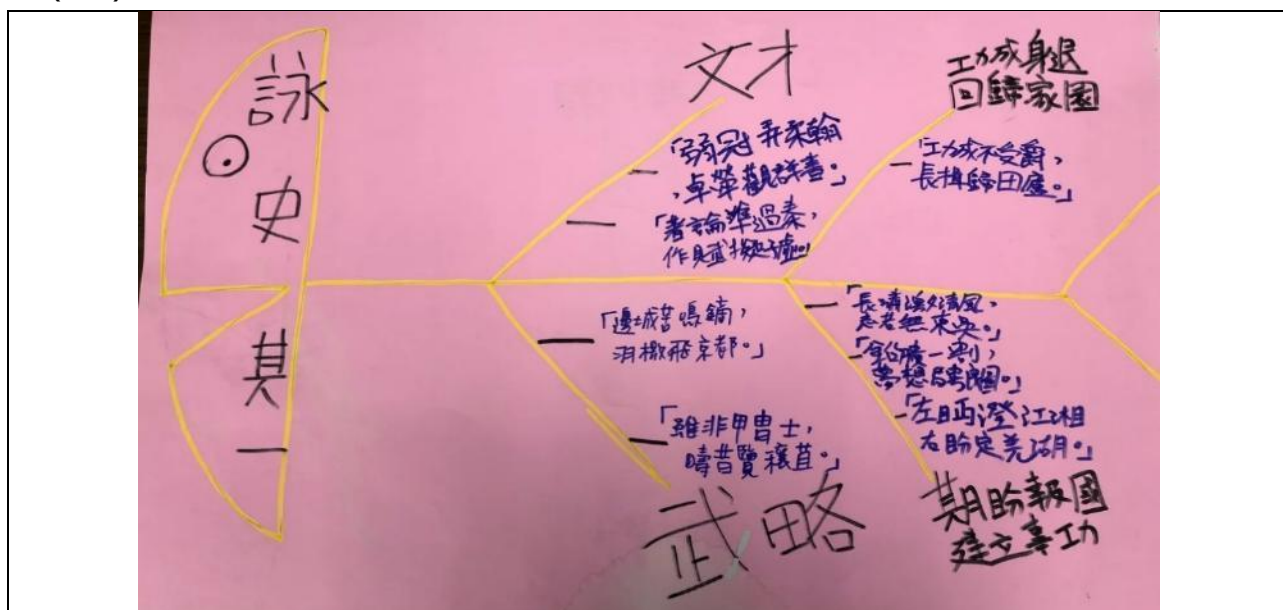 詠
史
其
一
文才
「弱冠弄柔翰
，卓犖觀群書。」
「著論準過秦，
作賦擬子虛。」
功成身退
回歸家園
「功成不受爵，
長揖歸田廬。」
「邊城苦鳴鏑，
羽檄飛京都。」
「雖非甲冑士，
疇昔覽穰苴。」
武略
「長嘯激清風，
志若無東吳。」
「鉛刀貴一割，
夢想騁良圖。」
「左眄澄江湘
右盼定羌胡。」
期盼報國
建立事功